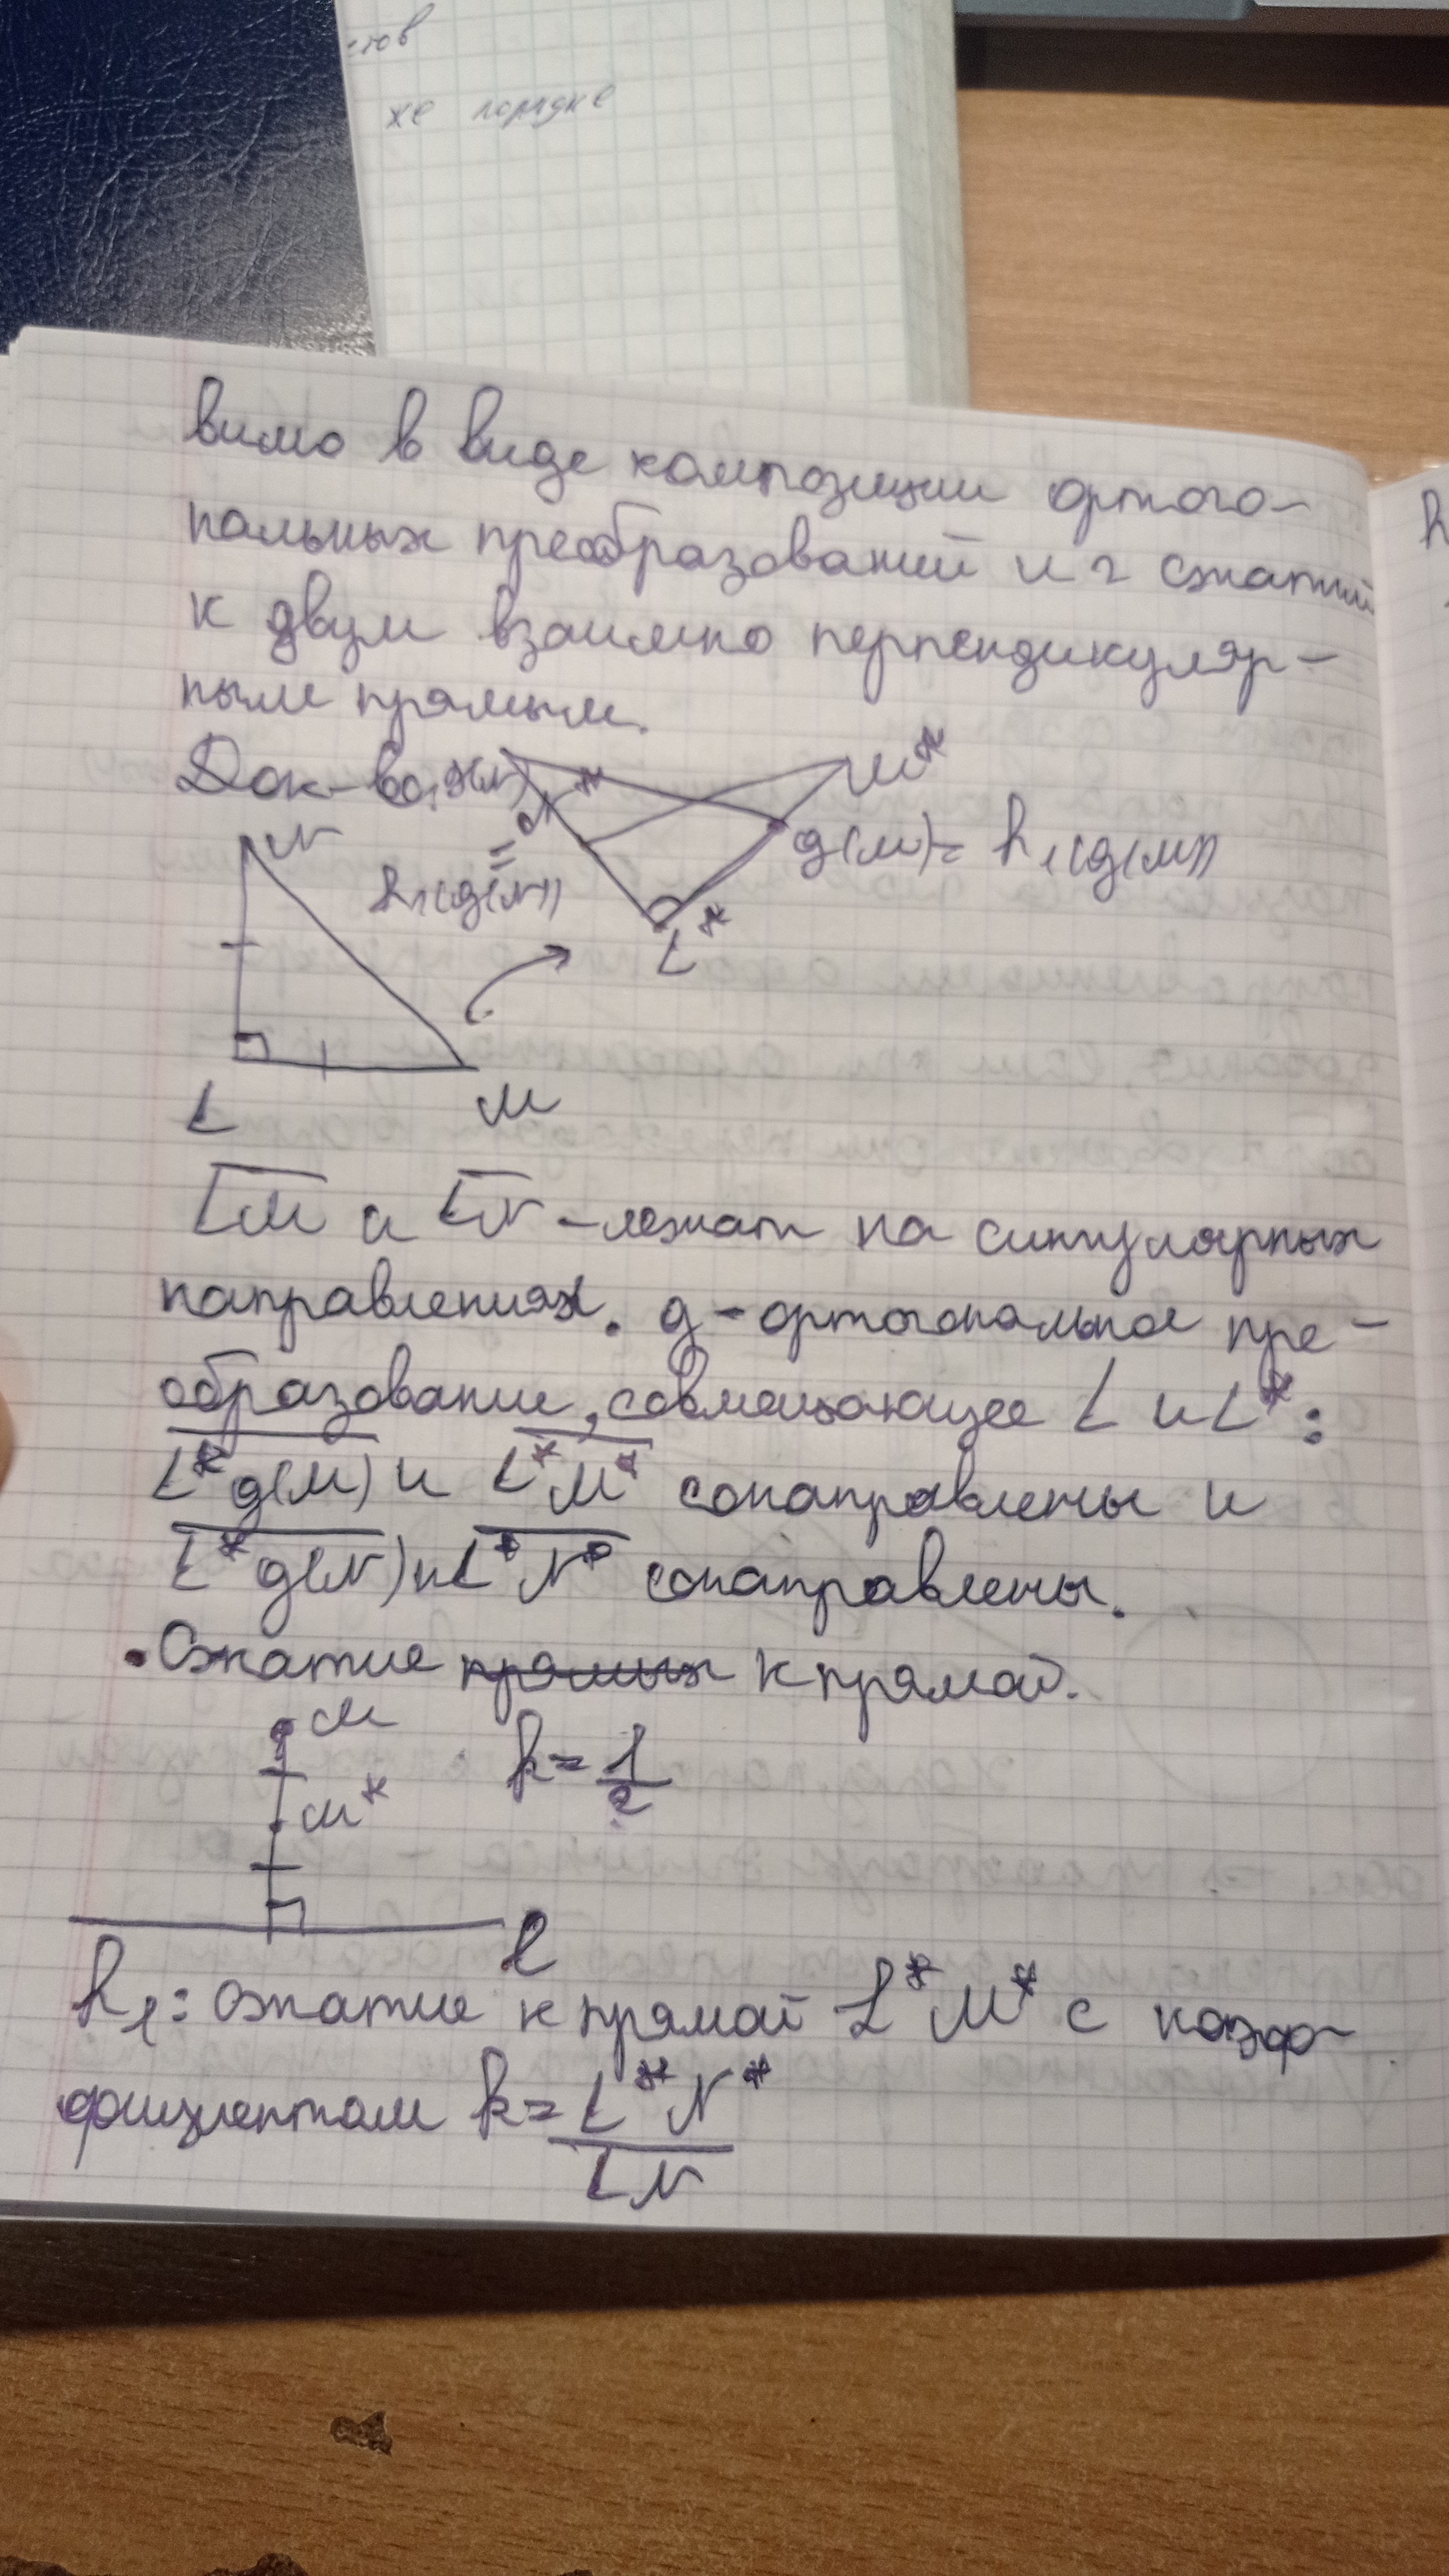 стов
же порядке
вимо в виде композиции ортого-
нальных преобразований и 2 сжатий
к двум взаимно перпендикуляр-
ным прямым.
Док-во:
g(N)
N*
M*
=
h₁(g(N))
g(M) = h₁(g(M))
L*
N
L
M
LM и LN - лежат на сингулярных
направлениях. g - ортогональное пре-
образование, совмещающее L и L*:
L*g(M) и L*M* сонаправлены и
L*g(N) и L*N* сонаправлены.
• Сжатие прямых к прямой.
M
k = 1/2
M*
l
h₁: сжатие к прямой L*M* с коэф-
фициентом k = L*N*
LN
h